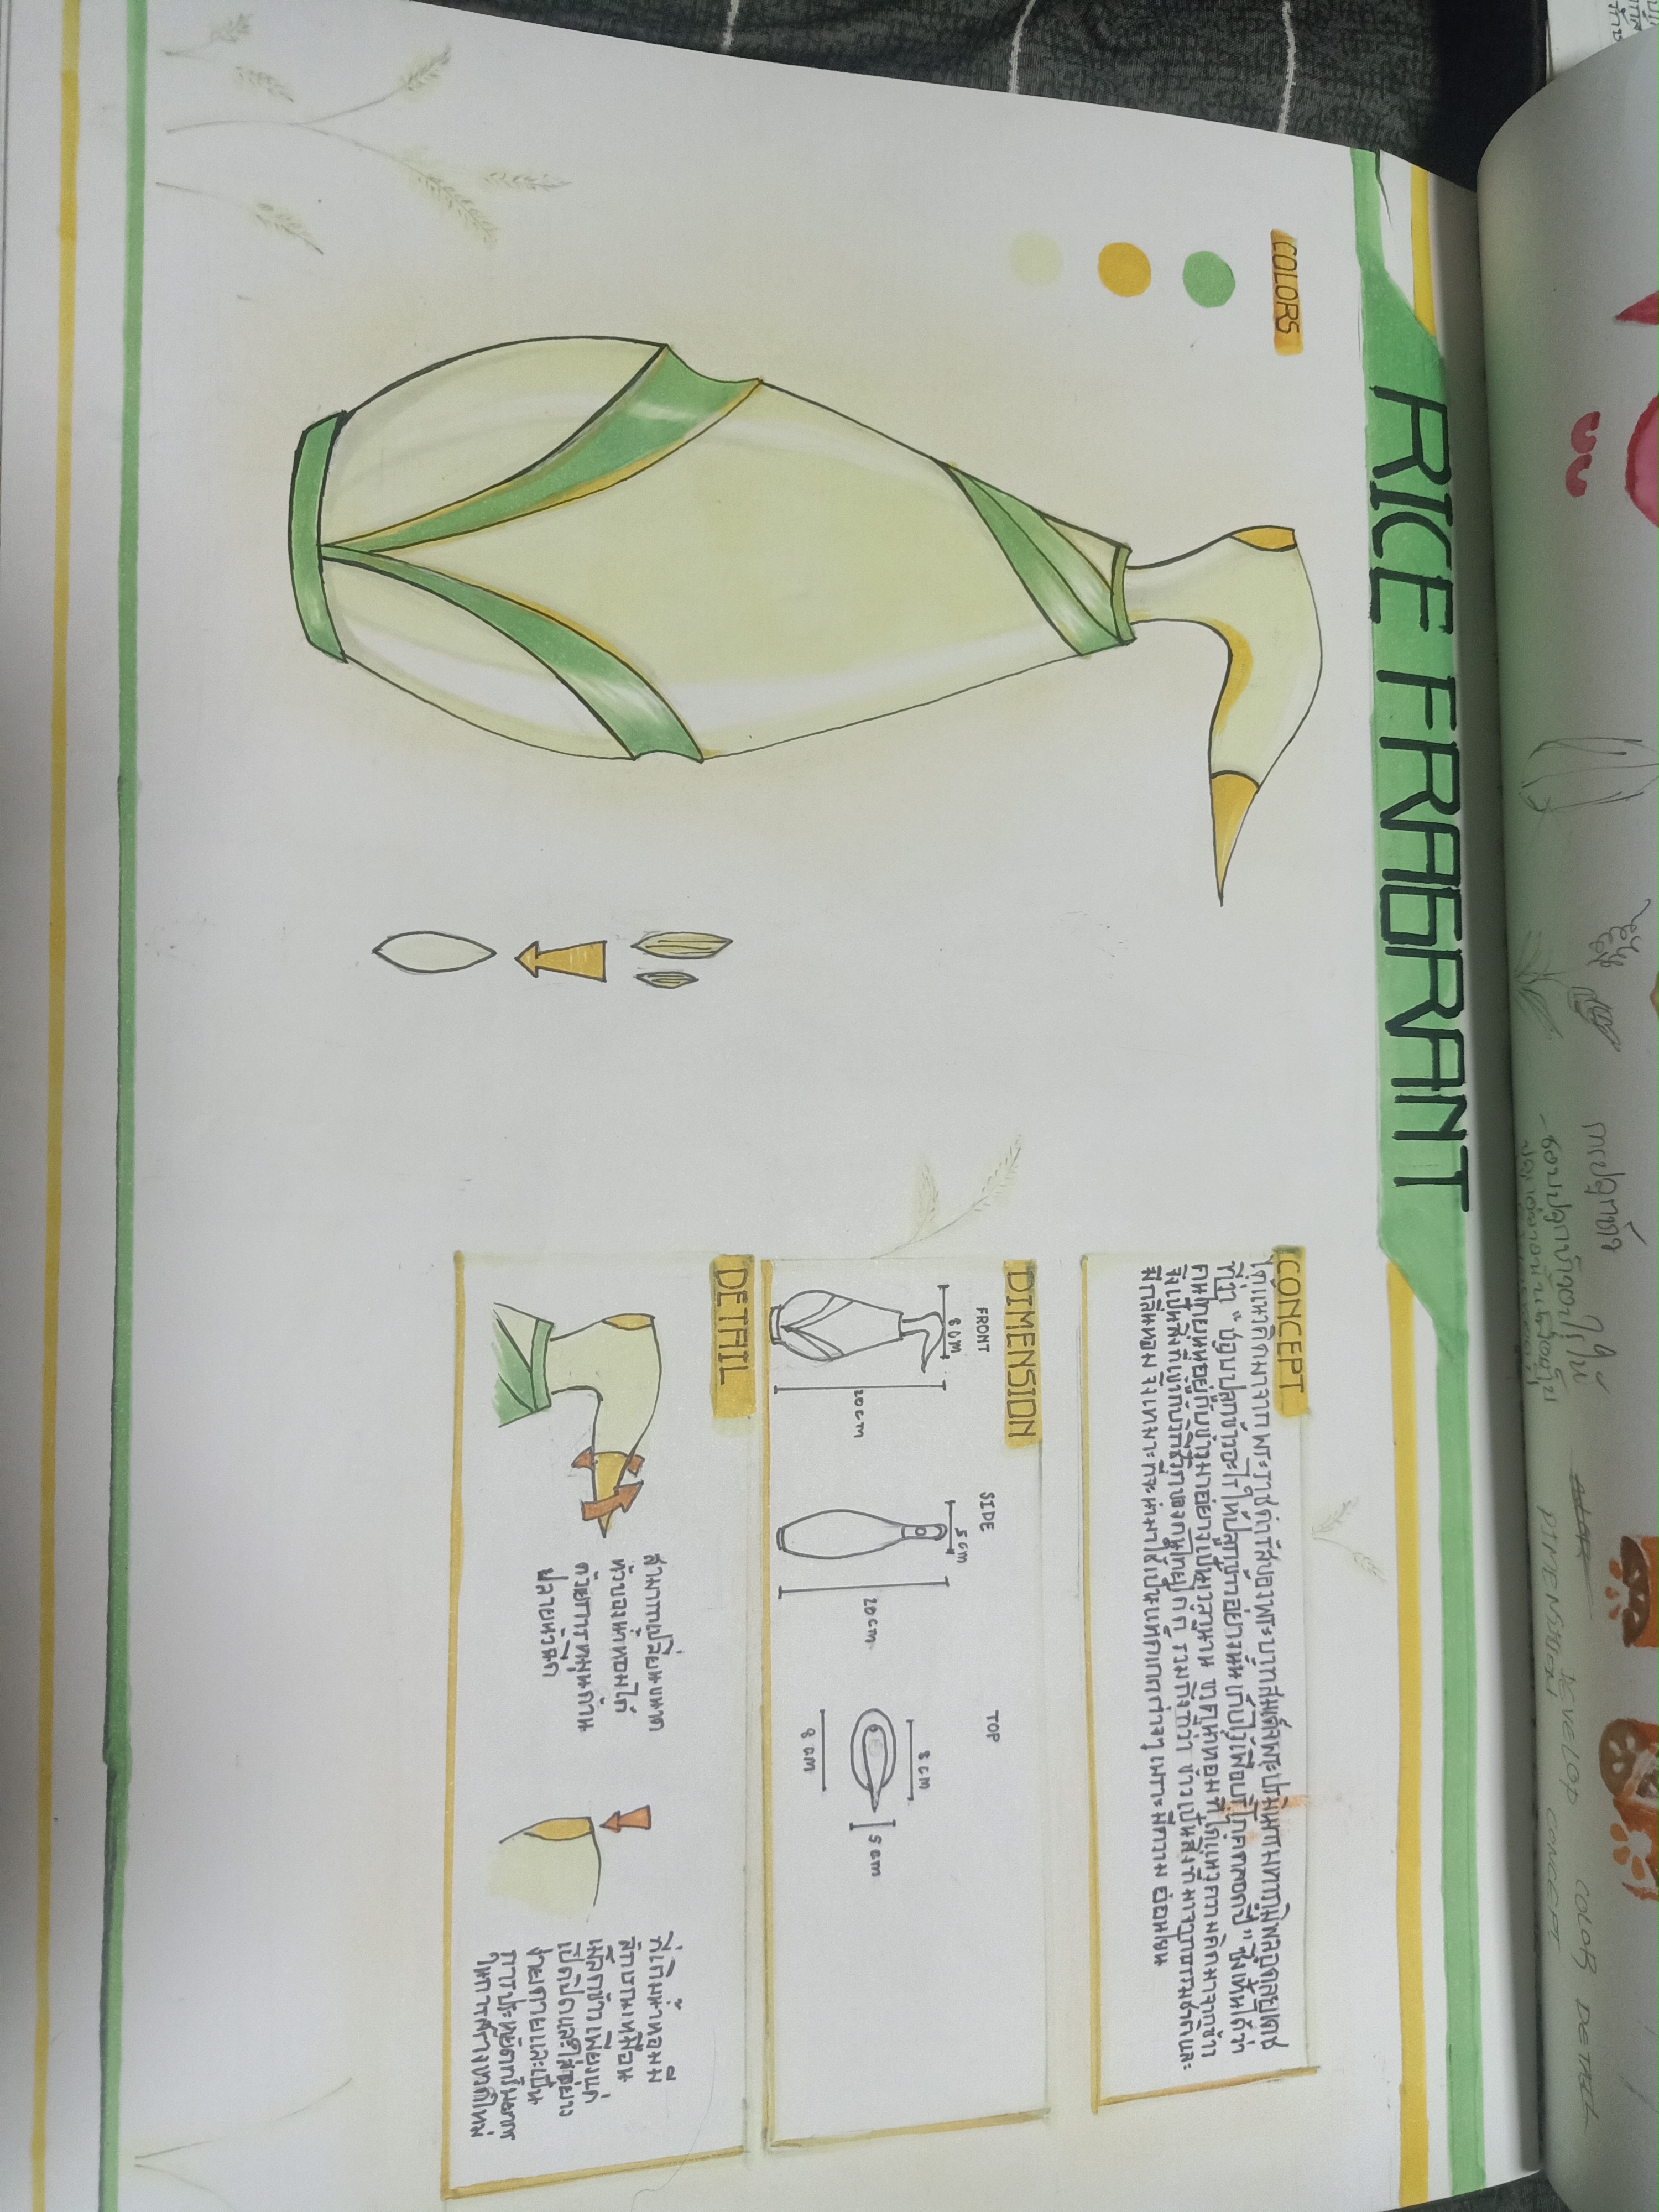 การปลูกข้าว
ชอบปลูกข้าวอะไรให้
COLOR DETAIL
DEVELOP
DIMENSION
CONCEPT
RICE FRAGRANT
COLORS
CONCEPT
ได้แนวคิดมาจากพระราชดำรัสของพระบาทสมเด็จพระปรมินทรมหาภูมิพลอดุลยเดช
ที่ว่า "ชอบปลูกข้าวอะไรให้ปลูกข้าวอย่างนั้น เก็บไว้เพื่อบริโภคตลอดปี" ซึ่งเห็นได้ว่า
คนไทยนั้นอยู่กับข้าวมาอย่างเป็นเวลานาน ขวดน้ำหอมที่ได้แนวความคิดมาจากข้าว
จึงเป็นสิ่งที่เข้ากับวิถีชีวิตของคนไทยได้ดี รวมถึงที่ว่า ข้าวเป็นสิ่งที่มาจากธรรมชาติและ
มีกลิ่นหอม จึงเหมาะที่จะนำมาใช้เป็นแพ็คเกดต่างๆ เพราะมีความ อ่อนโยน
DIMENSION
FRONT
8 cm
20 cm
SIDE
5 cm
20 cm
TOP
8 cm
5 cm
8 cm
DETAIL
สามารถเปลี่ยนขนาด
หัวของน้ำหอมได้
ด้วยการหมุนด้าน
ปลายหัวฉีด
ที่เติมน้ำหอมมี
ลักษณะเหมือน
เมล็ดข้าว เพียงแค่
เปิดปิดและใส่อย่าง
ง่ายดายและเป็น
การประหยัดทรัพยากร
ในการสร้างขวดใหม่